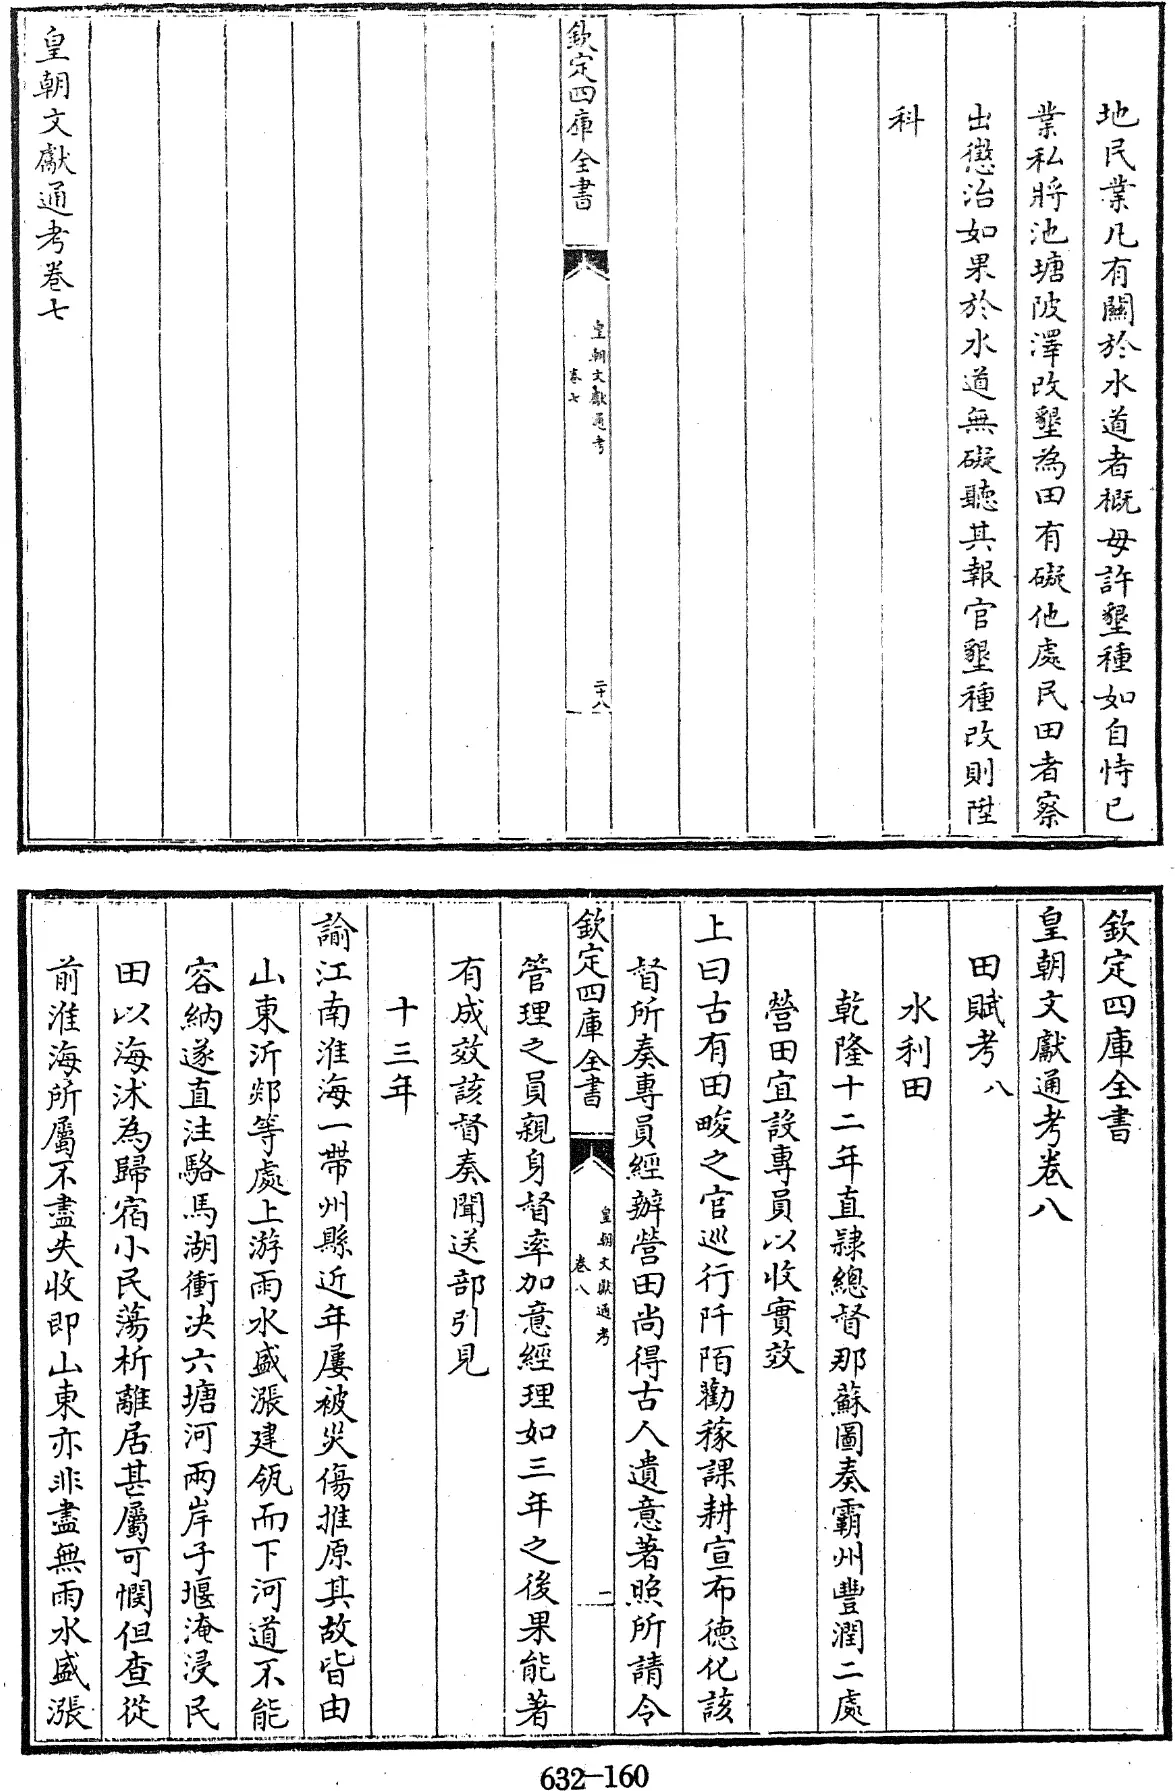 地民業凡有關於水道者概毋許墾種如自恃已
業私將池塘陂澤改墾為田有礙他處民田者察
出懲治如果於水道無礙聽其報官墾種改則陞
科
欽定四庫全書
皇朝文獻通考
卷七
二十八
皇朝文獻通考卷七
欽定四庫全書
皇朝文獻通考卷八
田賦考八
水利田
乾隆十二年直隸總督那蘇圖奏霸州豐潤二處
營田宜設專員以收實效
上曰古有田畯之官巡行阡陌勸稼課耕宣布德化該
督所奏專員經辦營田尚得古人遺意著照所請令
欽定四庫全書
皇朝文獻通考
卷八
一
管理之員親身督率加意經理如三年之後果能著
有成效該督奏聞送部引見
十三年
諭江南淮海一帶州縣近年屢被災傷推原其故皆由
山東沂郯等處上游雨水盛漲建瓴而下河道不能
容納遂直注駱馬湖衝決六塘河兩岸子堰淹浸民
田以海沭為歸宿小民蕩析離居甚屬可憫但查從
前淮海所屬不盡失收即山東亦非盡無雨水盛漲
632-160